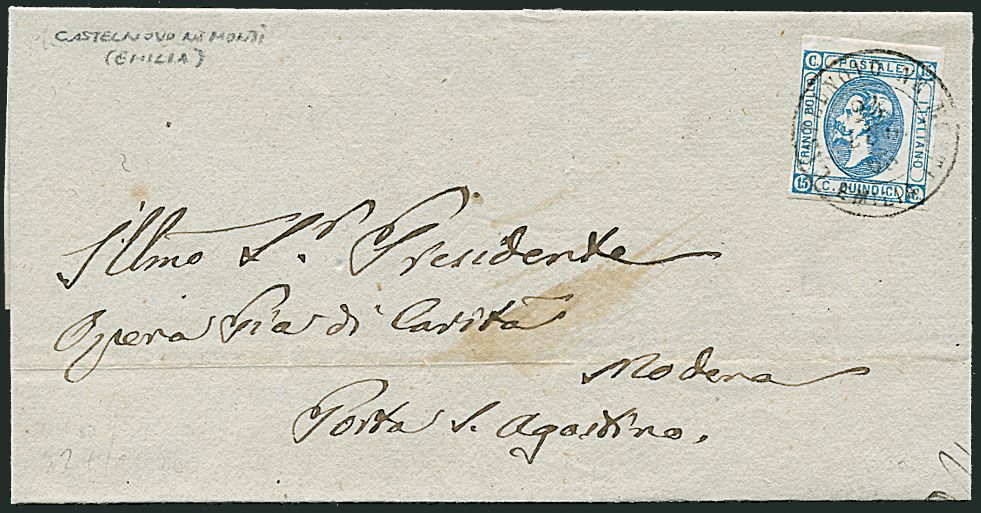 CASTELNOVO NE' MONTI
(EMILIA)
C. POSTALE 15
FRANCO BOLLO
ITALIANO
15 C. QUINDICI C.
Illmo Sr. Presidente
Opera Pia di Carità
Modena
Porta S. Agostino.